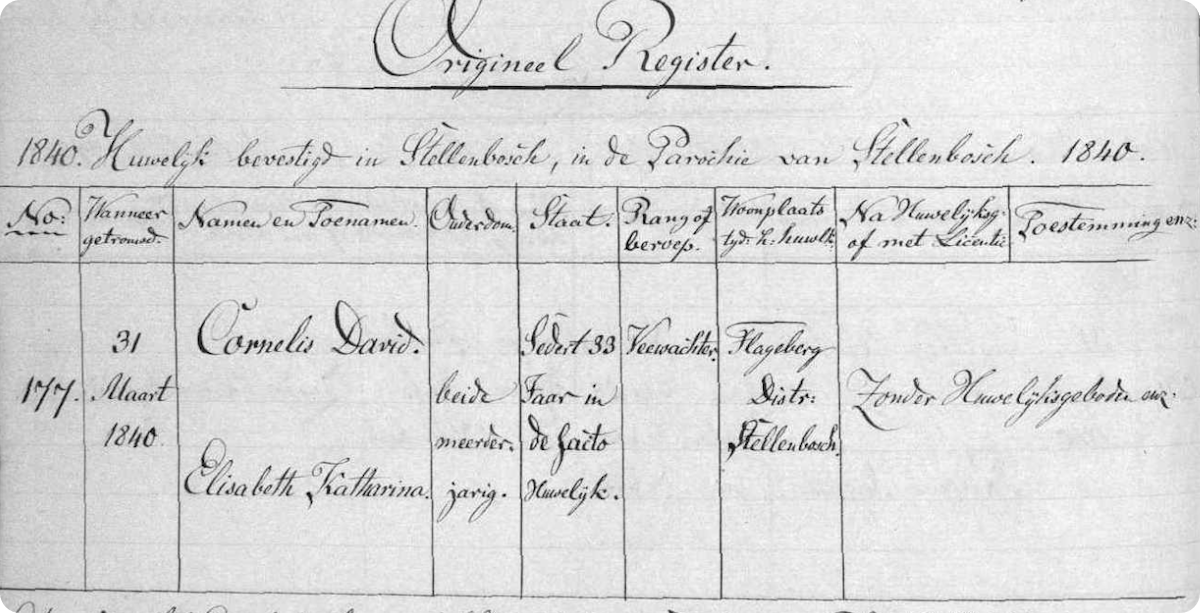 Origineel Register.
1840. Huwelijk bevestigd in Stellenbosch, in de Parochie van Stellenbosch. 1840.
No: Wanneer getrouwd. Namen en Toenamen. Ouderdom. Staat. Rang of beroep. Woonplaats tyd: h: huwlk. Na Huwelijksg. of met Licentie Toestemming enz:
31 Cornelis David. Sedert 33 Veewachter Hageberg
177. Maart beide Jaar in Distr: Zonder Huwelijksgeboden enz.
1840 meerder. de facto Stellenbosch.
Elisabeth Katharina. jarig. Huwelijk.